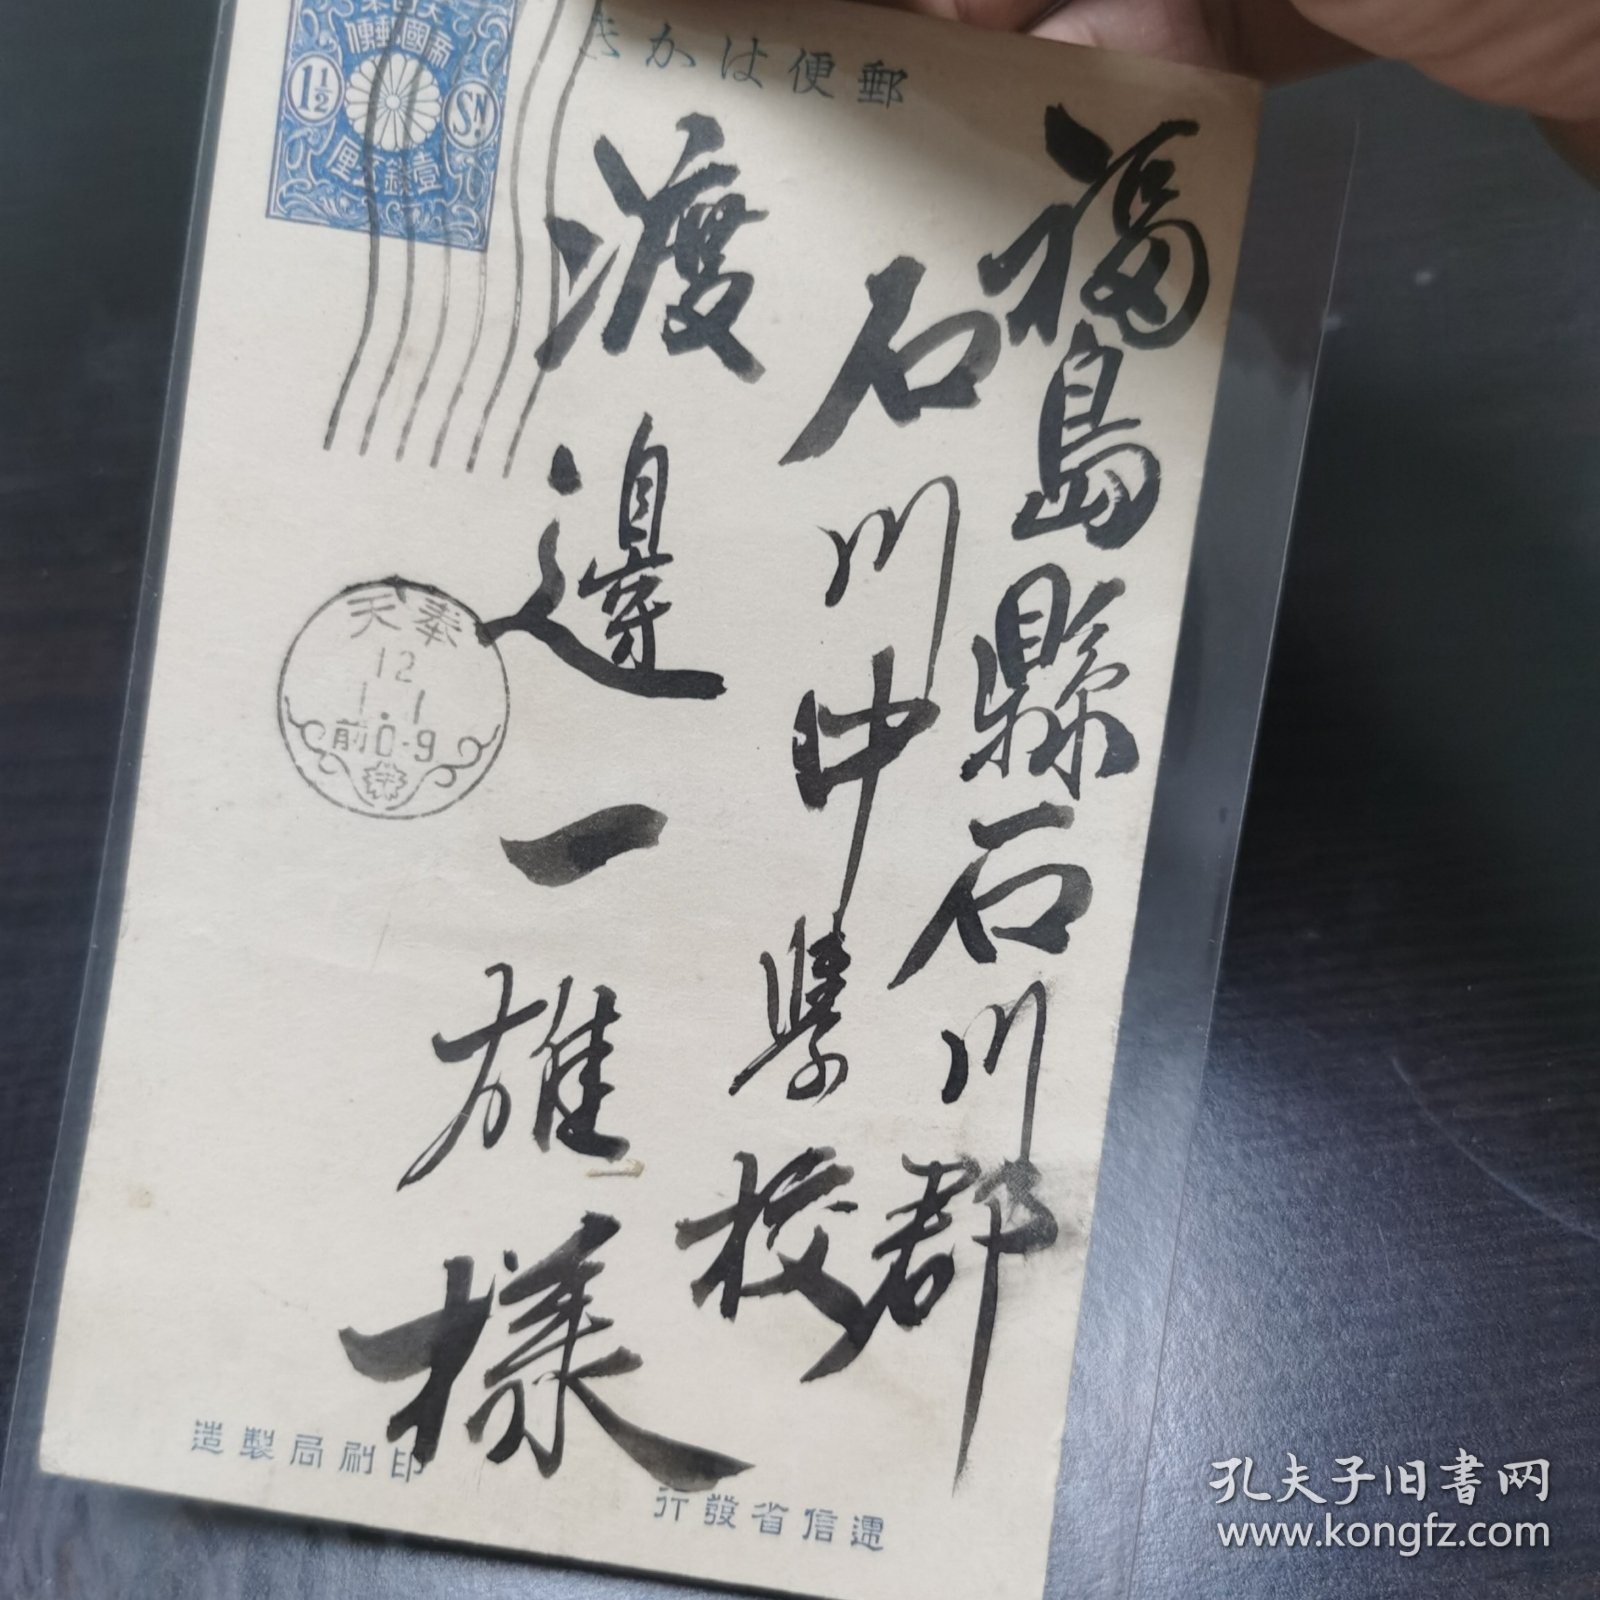 郵便はかき
大日本
帝國郵便
1½
SN.
壹錢五厘
福島縣石川郡
石川中學校
渡邊一雄様
奉天
12
1.1
前0-9
遞信省發行
印刷局製造
孔夫子旧書网
www.kongfz.com